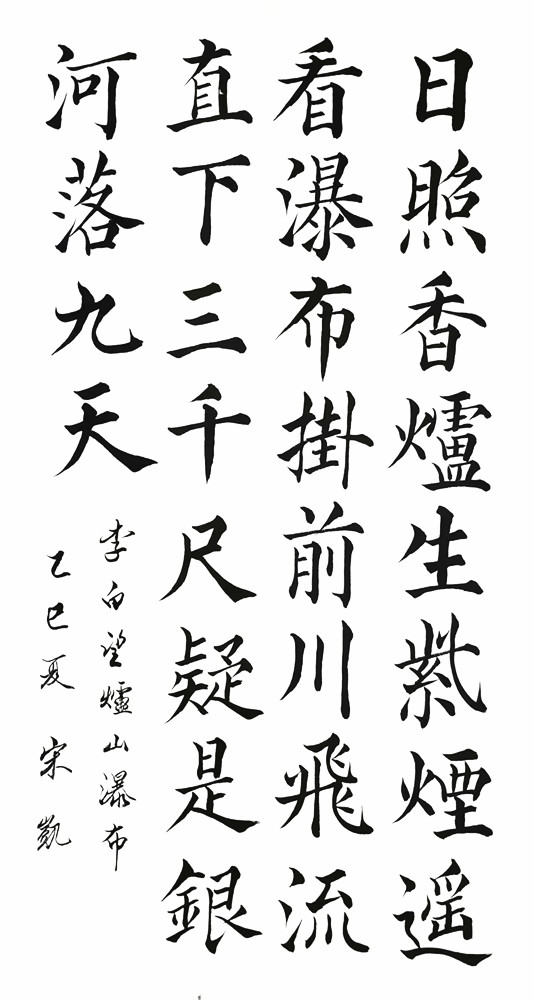 日照香爐生紫煙遥
看瀑布掛前川飛流
直下三千尺疑是銀
河落九天
李白望爐山瀑布
乙巳夏 宋凱